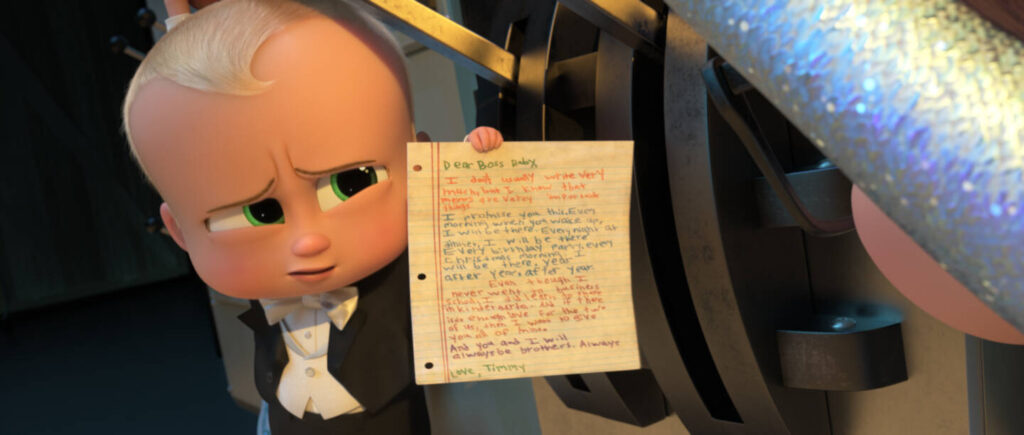 Dear Boss Baby,
I don't usually write very
much, but I know that
memos are very important
things
I promise you this. Every
morning when you wake up,
I will be there. Every night at
dinner, I will be there
Every birthday party, every
Christmas morning, I
will be there, year
after year, after year
Even though I
never went to business
school, I did learn to share
in kindergarten. And if there
isn't enough love for the two
of us, then I want to give
you all of mine.
And you and I will
always be brothers. Always
Love, Timmy